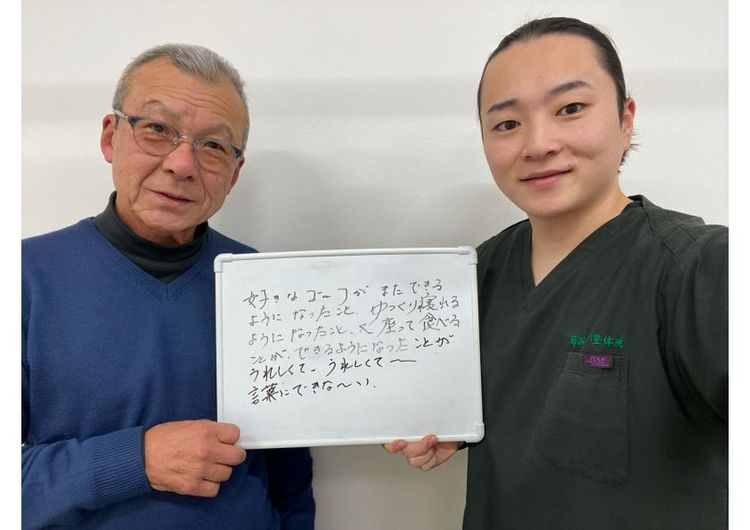 好きなゴルフがまたできる
ようになったこと、ゆっくり寝れる
ようになったこと、又座って食べる
ことが、できるようになったことが
うれしくて〜うれしくて〜
言葉にできな〜い、
整体院